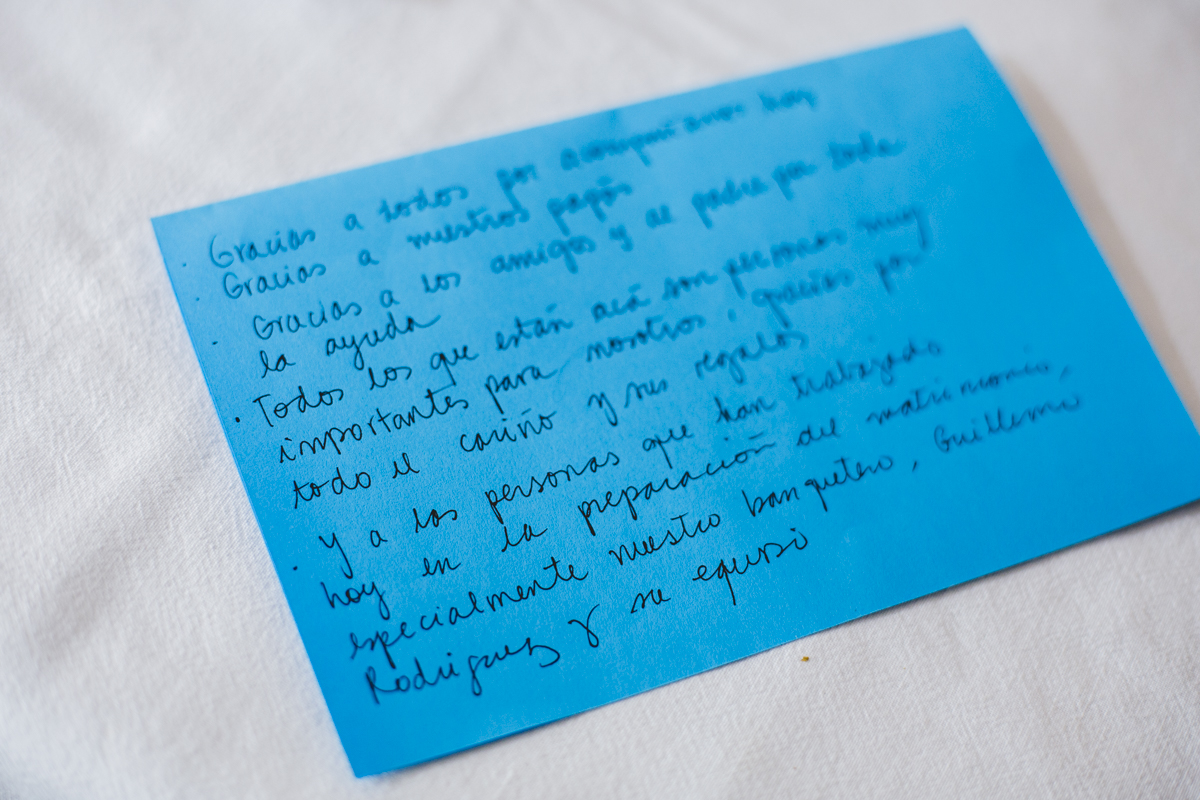 · Gracias a todos por acompañarnos hoy
· Gracias a nuestros papás
· Gracias a los amigos y al padre por toda
la ayuda
· Todos los que están acá son personas muy
importantes para nosotros, gracias por
todo el cariño y sus regalos
· y a las personas que han trabajado
hoy en la preparación del matrimonio,
especialmente nuestro banquetero, Guillermo
Rodriguez y su equipo